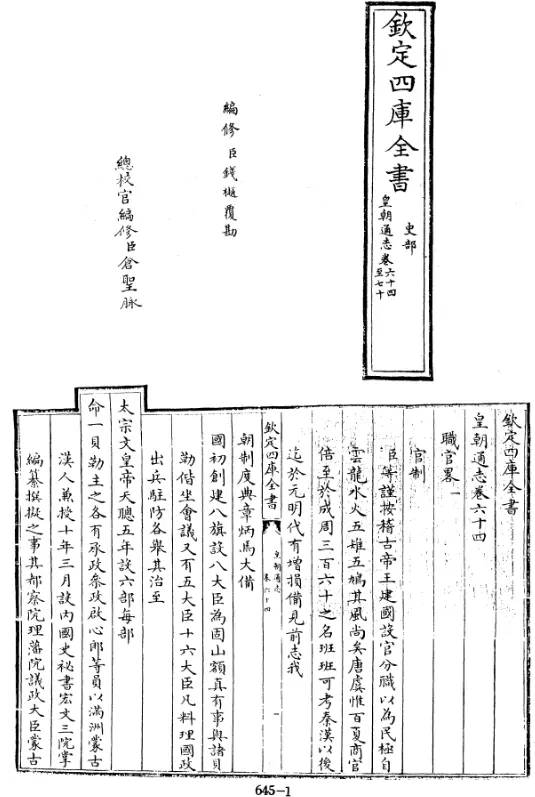 欽定四庫全書
史部
皇朝通志卷六十四至七十
編修臣錢樾覆勘
總校官編修臣倉聖脉
欽定四庫全書
皇朝通志卷六十四
職官畧一
官制
臣等謹按稽古帝王建國設官分職以為民極自
雲龍水火五雉五鳩其風尚矣唐虞惟百夏商官
倍至於成周三百六十之名班班可考秦漢以後
迄於元明代有增損備見前志我
欽定四庫全書
皇朝通志
卷六十四
一
朝制度典章炳焉大備
國初創建八旗設八大臣為固山額真有事與諸貝
勒偕坐會議又有五大臣十六大臣凡料理國政
出兵駐防各舉其治至
太宗文皇帝天聰五年設六部每部
命一貝勒主之各有承政叅政啟心郎等員以滿洲蒙古
漢人兼授十年三月設內國史祕書宏文三院掌
編纂撰擬之事其都察院理藩院議政大臣蒙古
645-1